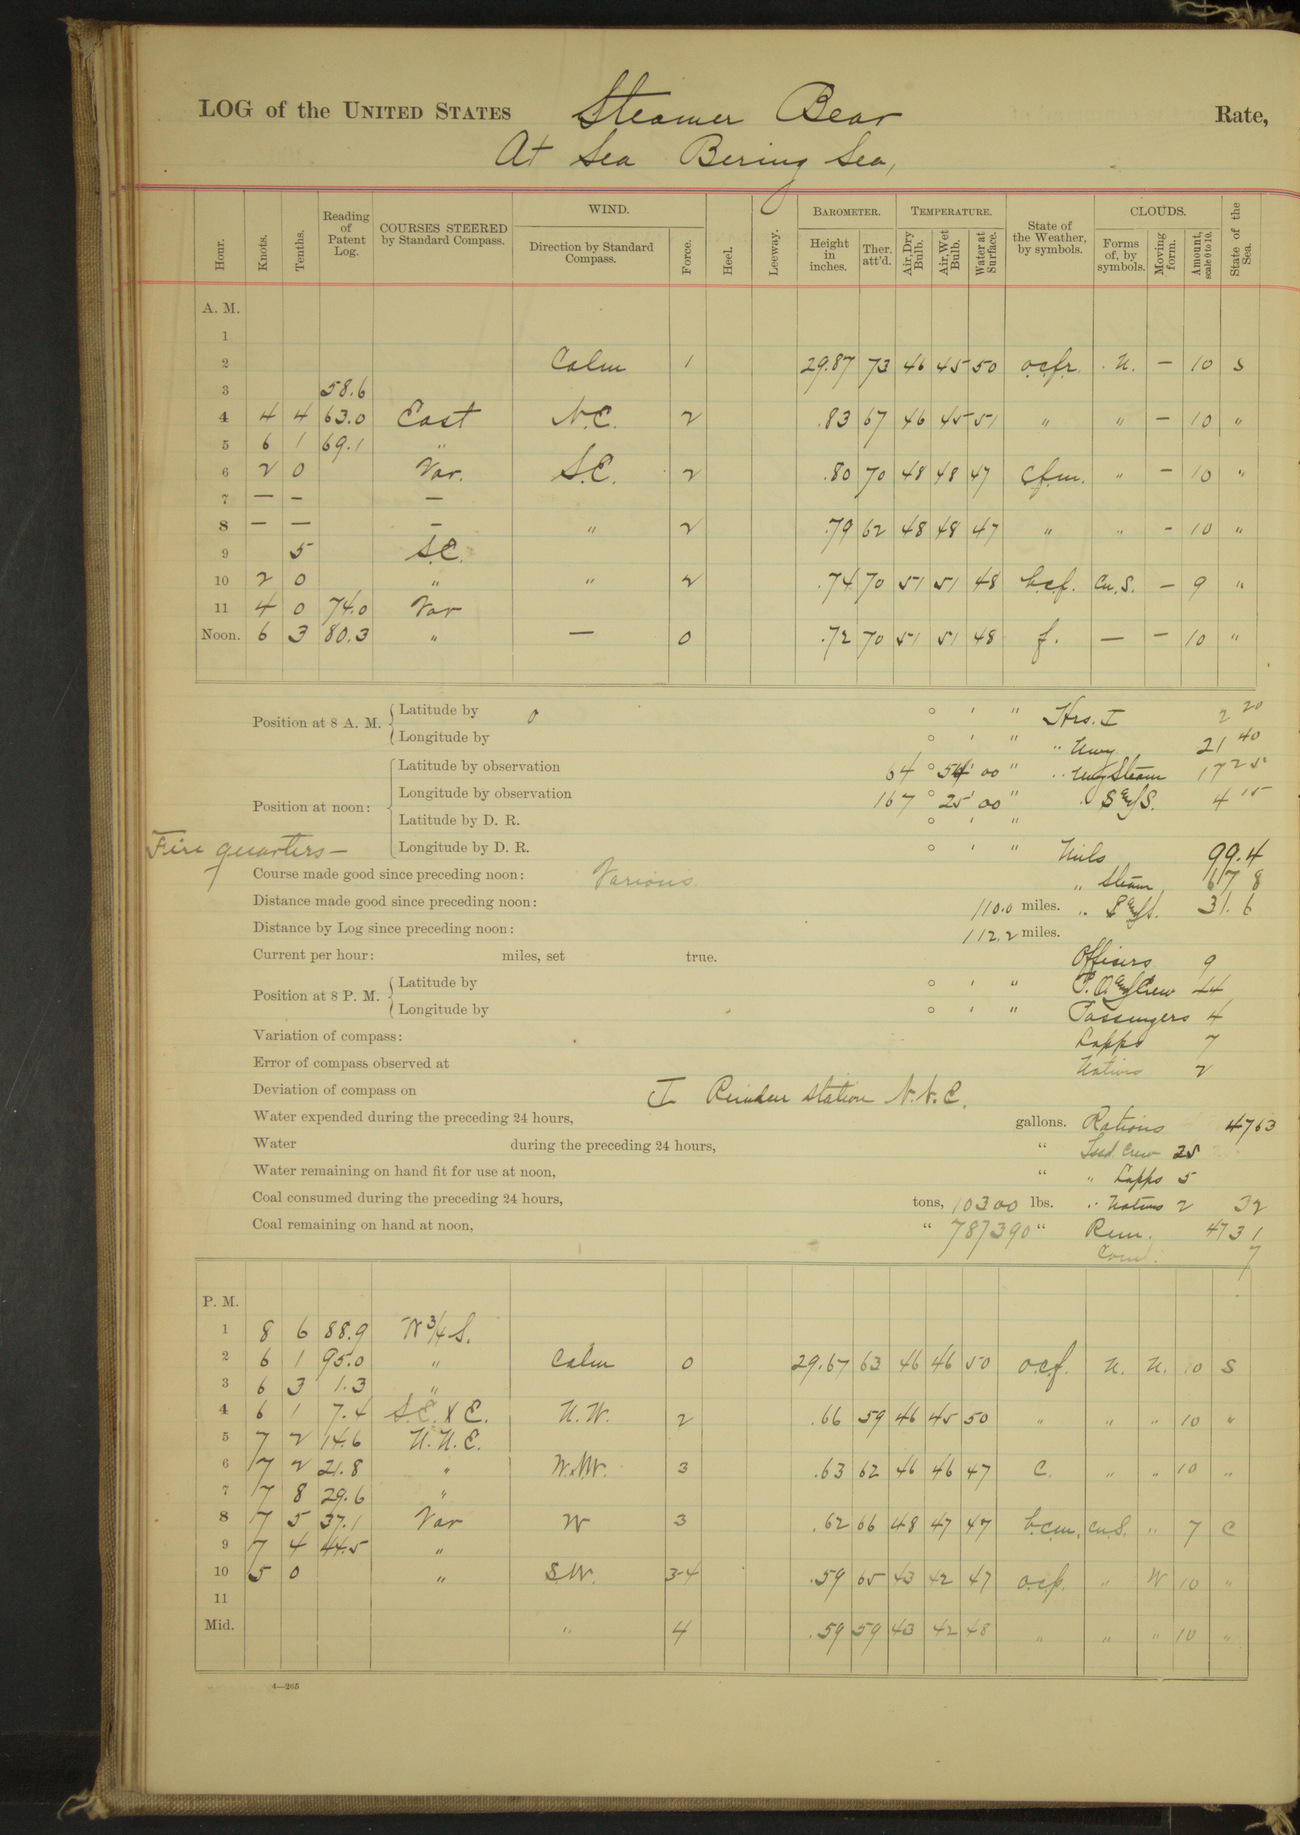 LOG of the UNITED STATES Steamer Bear Rate,
At Sea Bering Sea,
Hour. Knots. Tenths. Reading of Patent Log. COURSES STEERED by Standard Compass. WIND. Direction by Standard Compass. Force. Heel. Leeway. BAROMETER. Height in inches. Ther. att'd. TEMPERATURE. Air, Dry Bulb. Air, Wet Bulb. Water at Surface. State of the Weather, by symbols. CLOUDS. Forms of, by symbols. Moving form. Amount, scale 0 to 10. State of the Sea.
A. M.
1
2 Calm 1 29.87 73 46 45 50 o.c.f.r. N. — 10 S
3 58.6
4 4 4 63.0 East N.E. 2 .83 67 46 45 51 " " — 10 "
5 6 1 69.1 "
6 2 0 Var. S.E. 2 .80 70 48 48 47 c.f.m. " — 10 "
7 — — —
8 — — — " 2 .79 62 48 48 47 " " - 10 "
9 5 S.E.
10 2 0 " " 2 .74 70 51 51 48 b.c.f. Cu.S. — 9 "
11 4 0 74.0 Var
Noon. 6 3 80.3 " — 0 .72 70 51 51 48 f. — — 10 "
Position at 8 A. M. { Latitude by 0 ° ' " Hrs. I 2 20
Longitude by ° ' " " Uwy 21 40
Position at noon: { Latitude by observation 64 ° 54 ' 00 " " Uwy Steam 17 25
Longitude by observation 167 ° 25 ' 00 " " S and S. 4 15
Latitude by D. R. ° ' "
Fire quarters — Longitude by D. R. ° ' " Mils 99.4
Course made good since preceding noon: Various " Steam 67 8
Distance made good since preceding noon: 110.0 miles. " S and S. 31. 6
Distance by Log since preceding noon: 112.2 miles.
Current per hour: miles, set true. Officers 9
Position at 8 P. M. { Latitude by ° ' " P. O. and Crew 44
Longitude by ° ' " Passengers 4
Variation of compass: Lapps 7
Error of compass observed at Natives 2
Deviation of compass on I Reindeer Station N.N.E.
Water expended during the preceding 24 hours, gallons. Rations 4763
Water during the preceding 24 hours, " Issd. Crew 25
Water remaining on hand fit for use at noon, " " Lapps 5
Coal consumed during the preceding 24 hours, tons, 10300 lbs. " Natives 2 32
Coal remaining on hand at noon, " 787390 " Rem. 4731
Com. 7
P. M.
1 8 6 88.9 W 3/4 S.
2 6 1 95.0 " Calm 0 29.67 63 46 46 50 o.c.f. N. N. 10 S
3 6 3 1.3 "
4 6 1 7.4 S.E. X E. N.W. 2 .66 59 46 45 50 " " " 10 "
5 7 2 14.6 N.N.E.
6 7 2 21.8 " W.N.W. 3 .63 62 46 46 47 C. " " 10 "
7 7 8 29.6 "
8 7 5 37.1 Var W 3 .62 66 48 47 47 b.c.m. Cu.S. " 7 C
9 7 4 44.5 "
10 5 0 " S.W. 3-4 .59 65 43 42 47 o.c.p. " W 10 "
11
Mid. " 4 .59 59 43 42 48 " " " 10 "
4—265